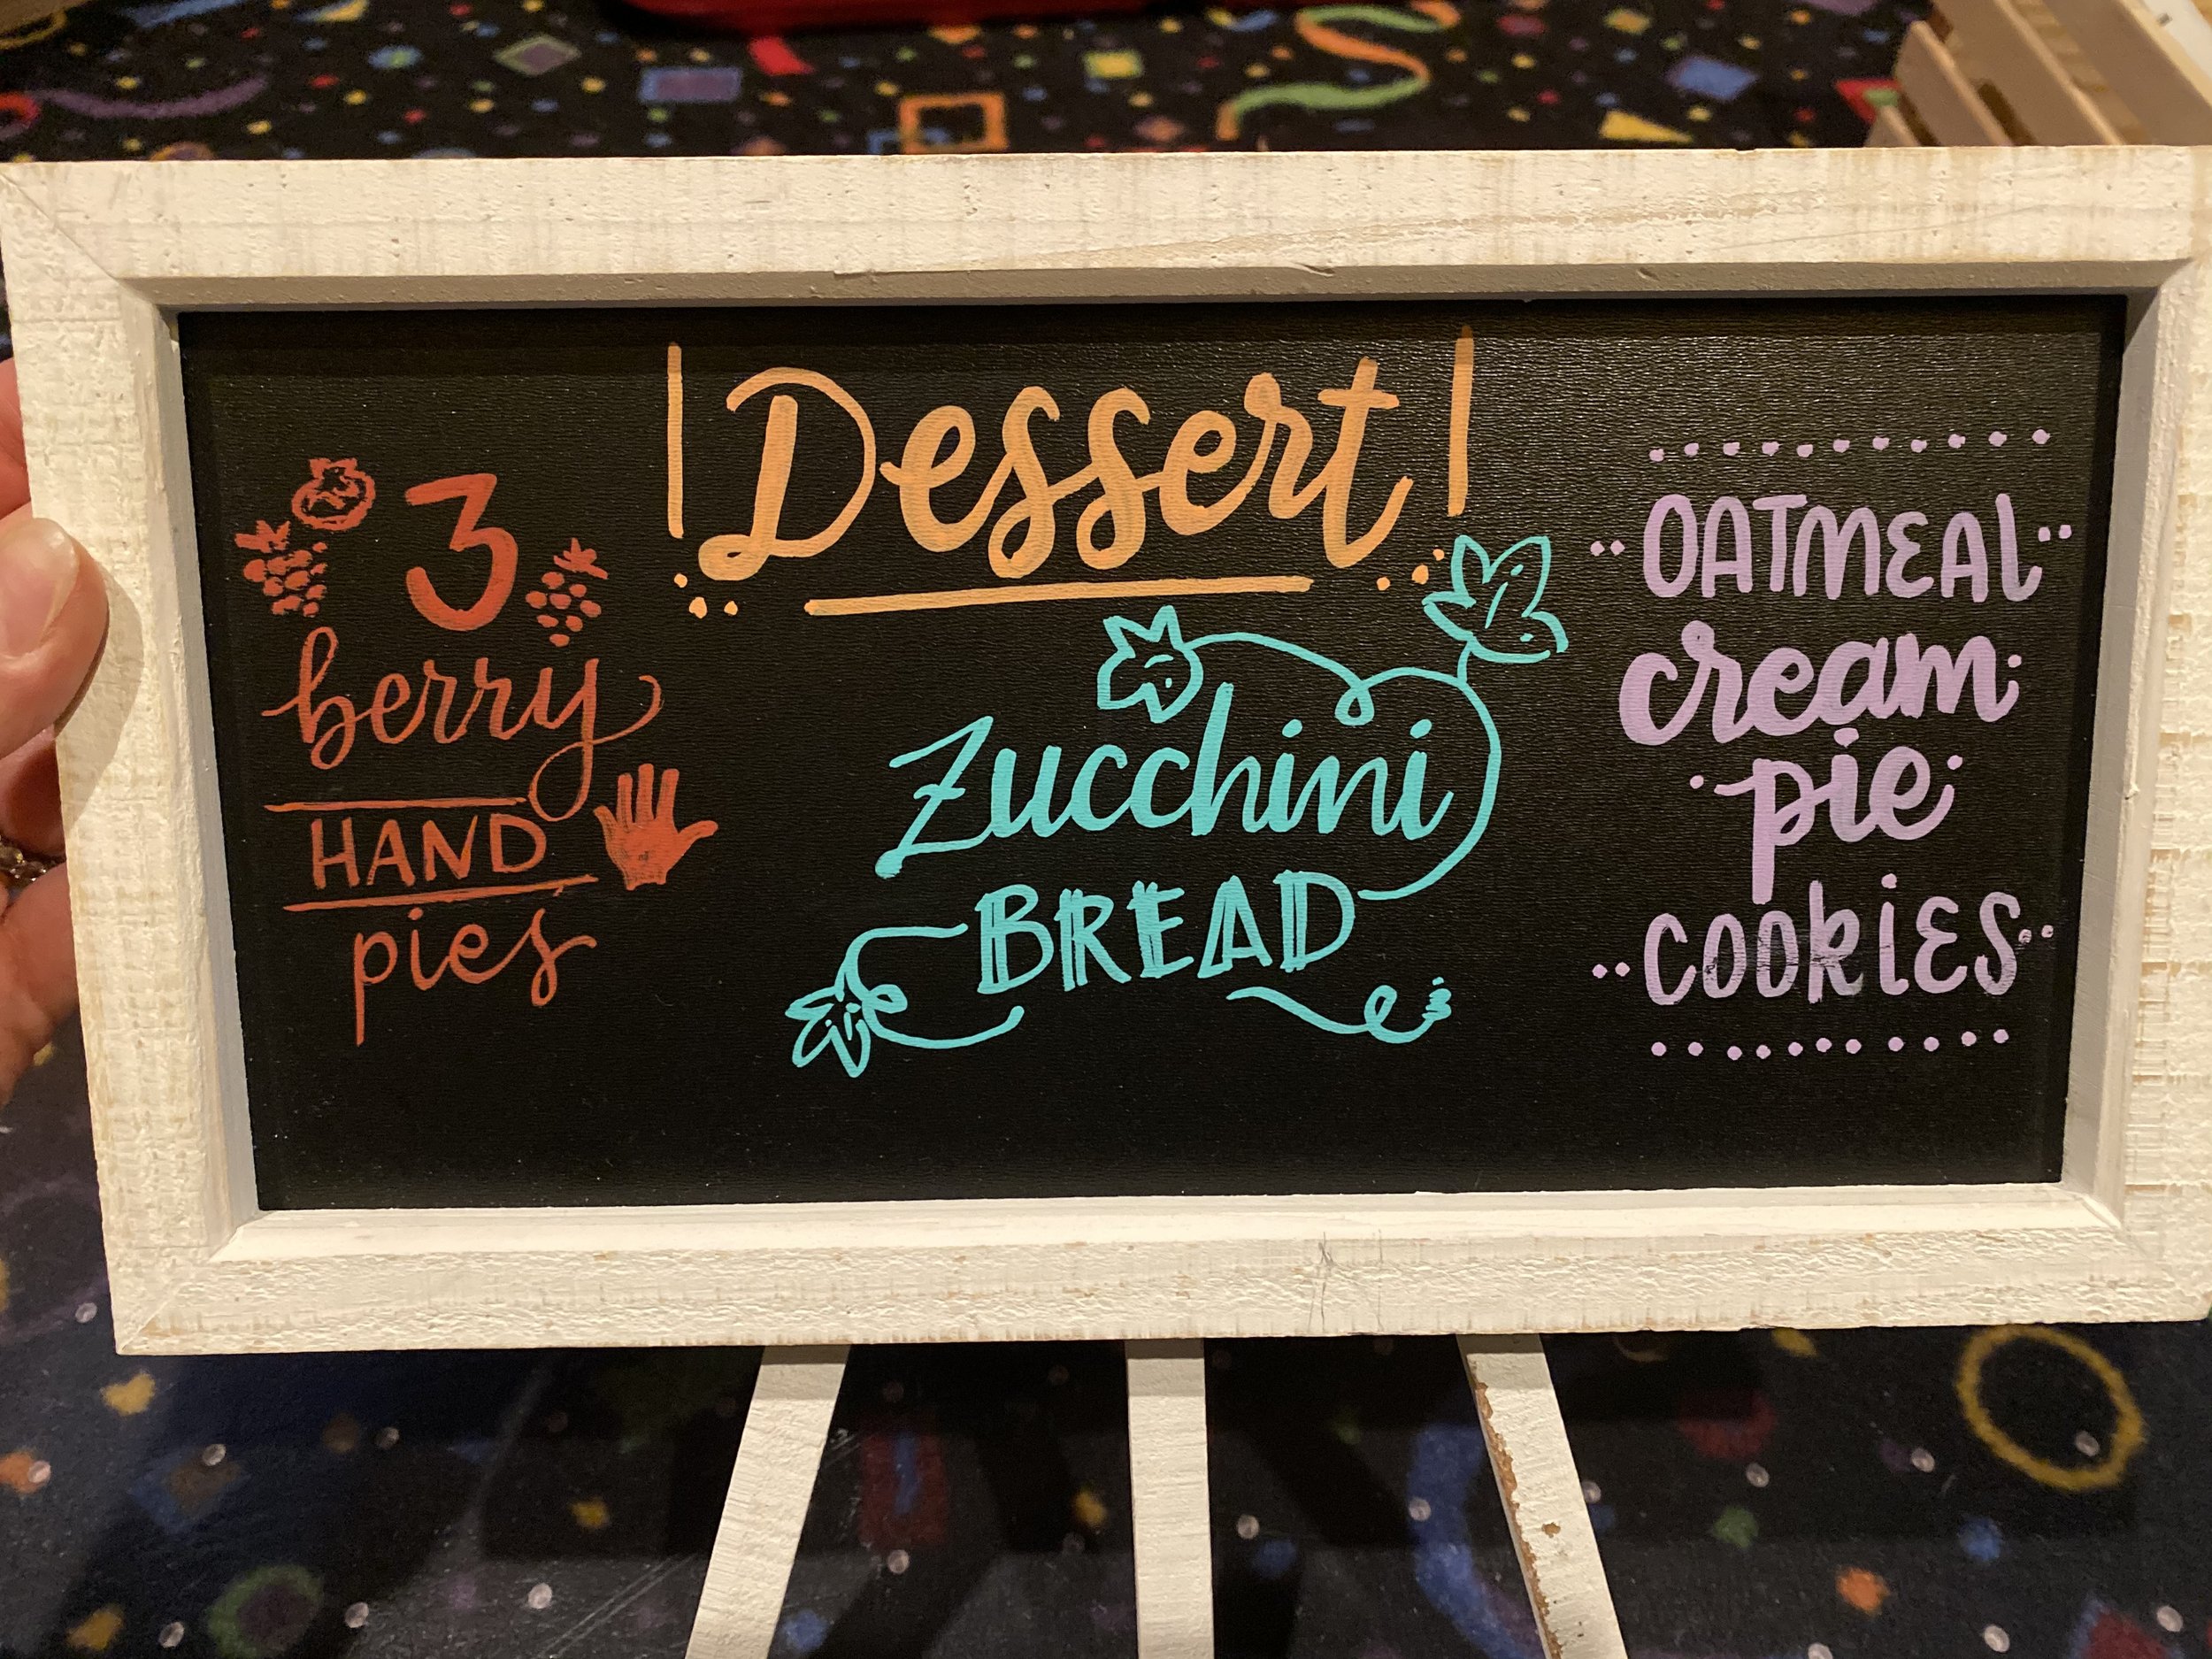 Dessert
3
berry
HAND
pies
Zucchini
BREAD
OATMEAL
cream
pie
COOKiES